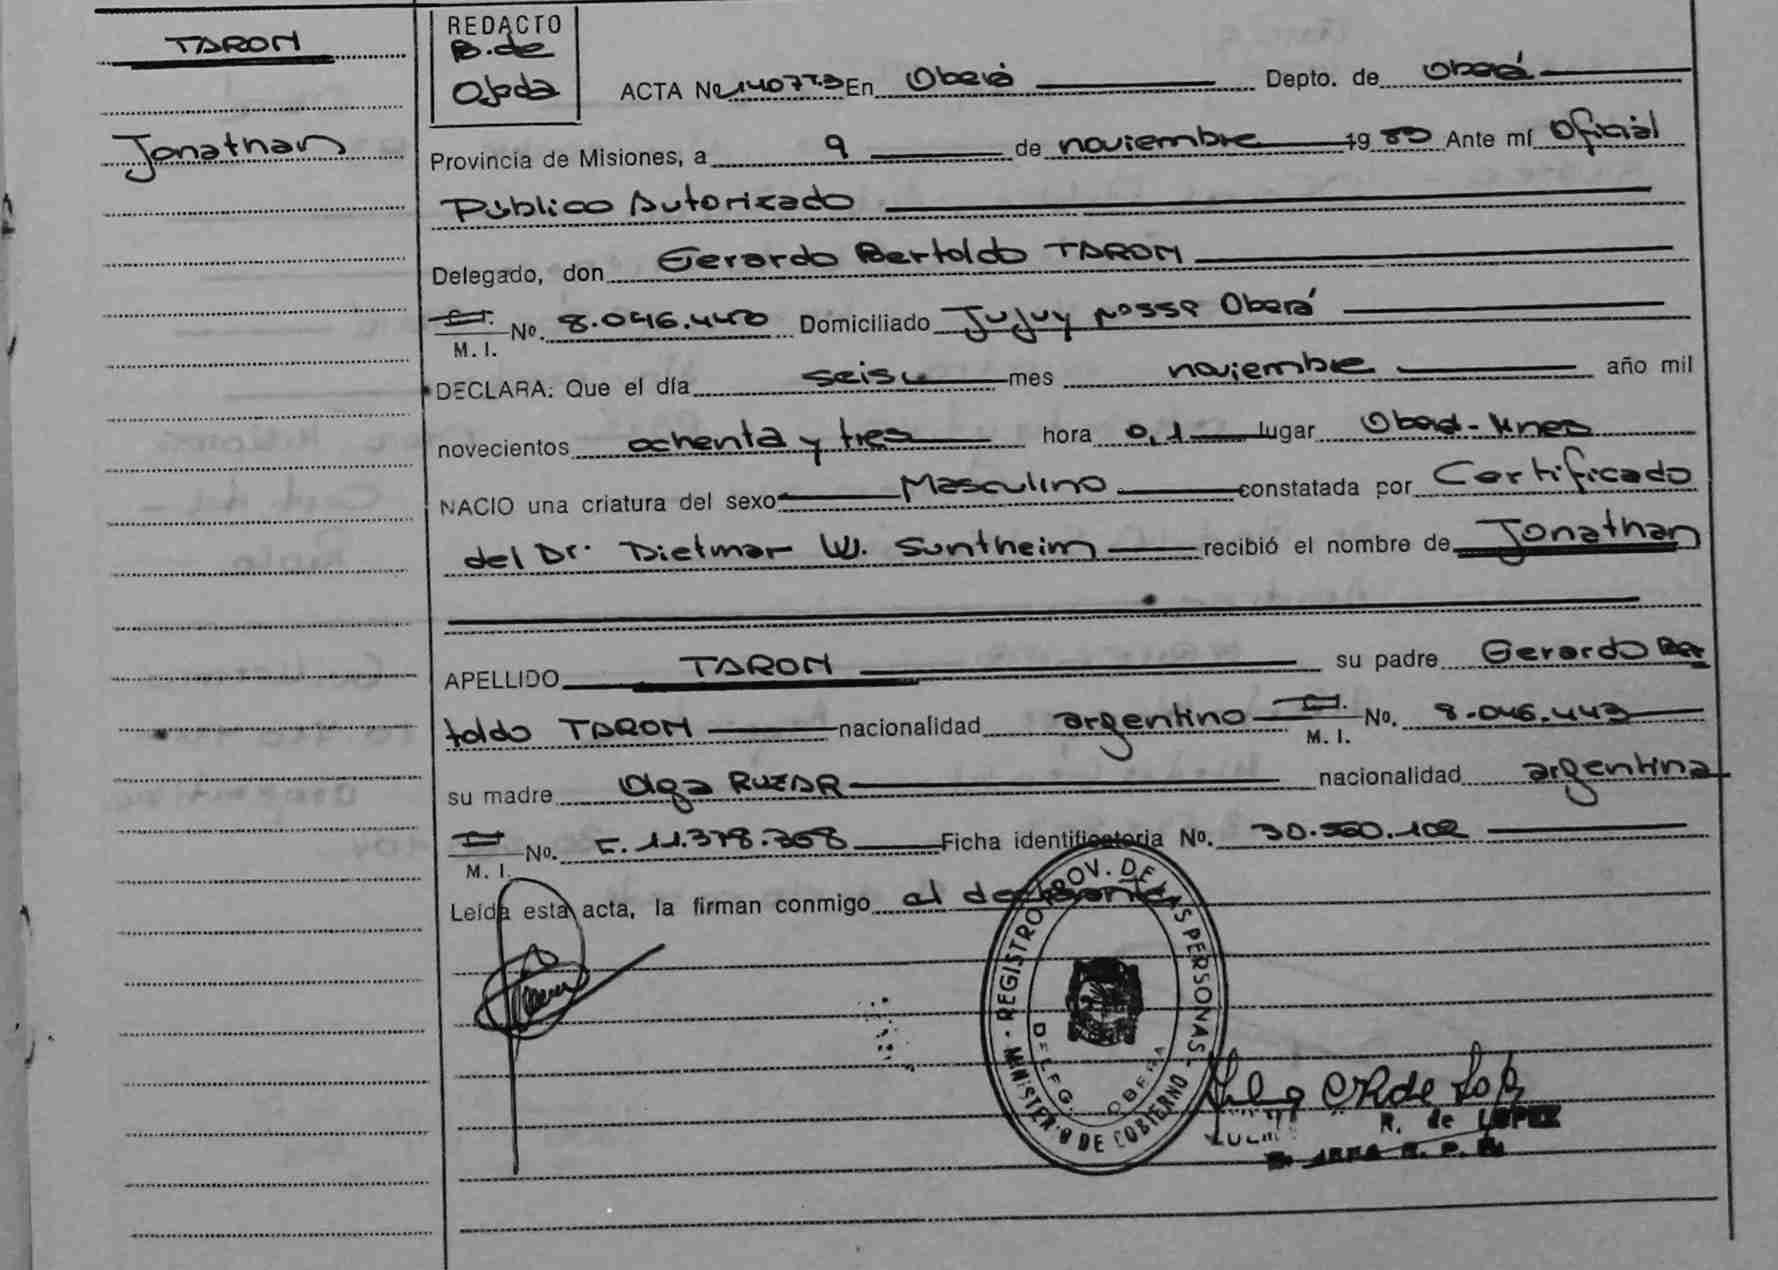 TARON
Jonathan
REDACTO
B. de
Ojeda
ACTA Nº 1407 En Oberá Depto. de Oberá
Provincia de Misiones, a 9 de noviembre 19 Ante mí Oficial
Público Autorizado
Delegado, don Gerardo Bertoldo TARON
M. I. No. 8.046.440 Domiciliado Jujuy Oberá
DECLARA: Que el día seis mes noviembre año mil
novecientos ochenta y tres hora 0,1 lugar Oberá
NACIO una criatura del sexo Masculino constatada por Certificado
del Dr. Dietmar W. Suntheim recibió el nombre de Jonathan
APELLIDO TARON su padre Gerardo Ber
toldo TARON nacionalidad argentino M. I. No. 8.046.443
su madre Olga nacionalidad argentina
M. I. No. F. 11.378. Ficha identificatoria No. 30.
Leída esta acta, la firman conmigo el declarante
REGISTRO PROV. DE LAS PERSONAS - MINISTERIO DE GOBIERNO -
DELEG. OBERA
R. de LOPEZ